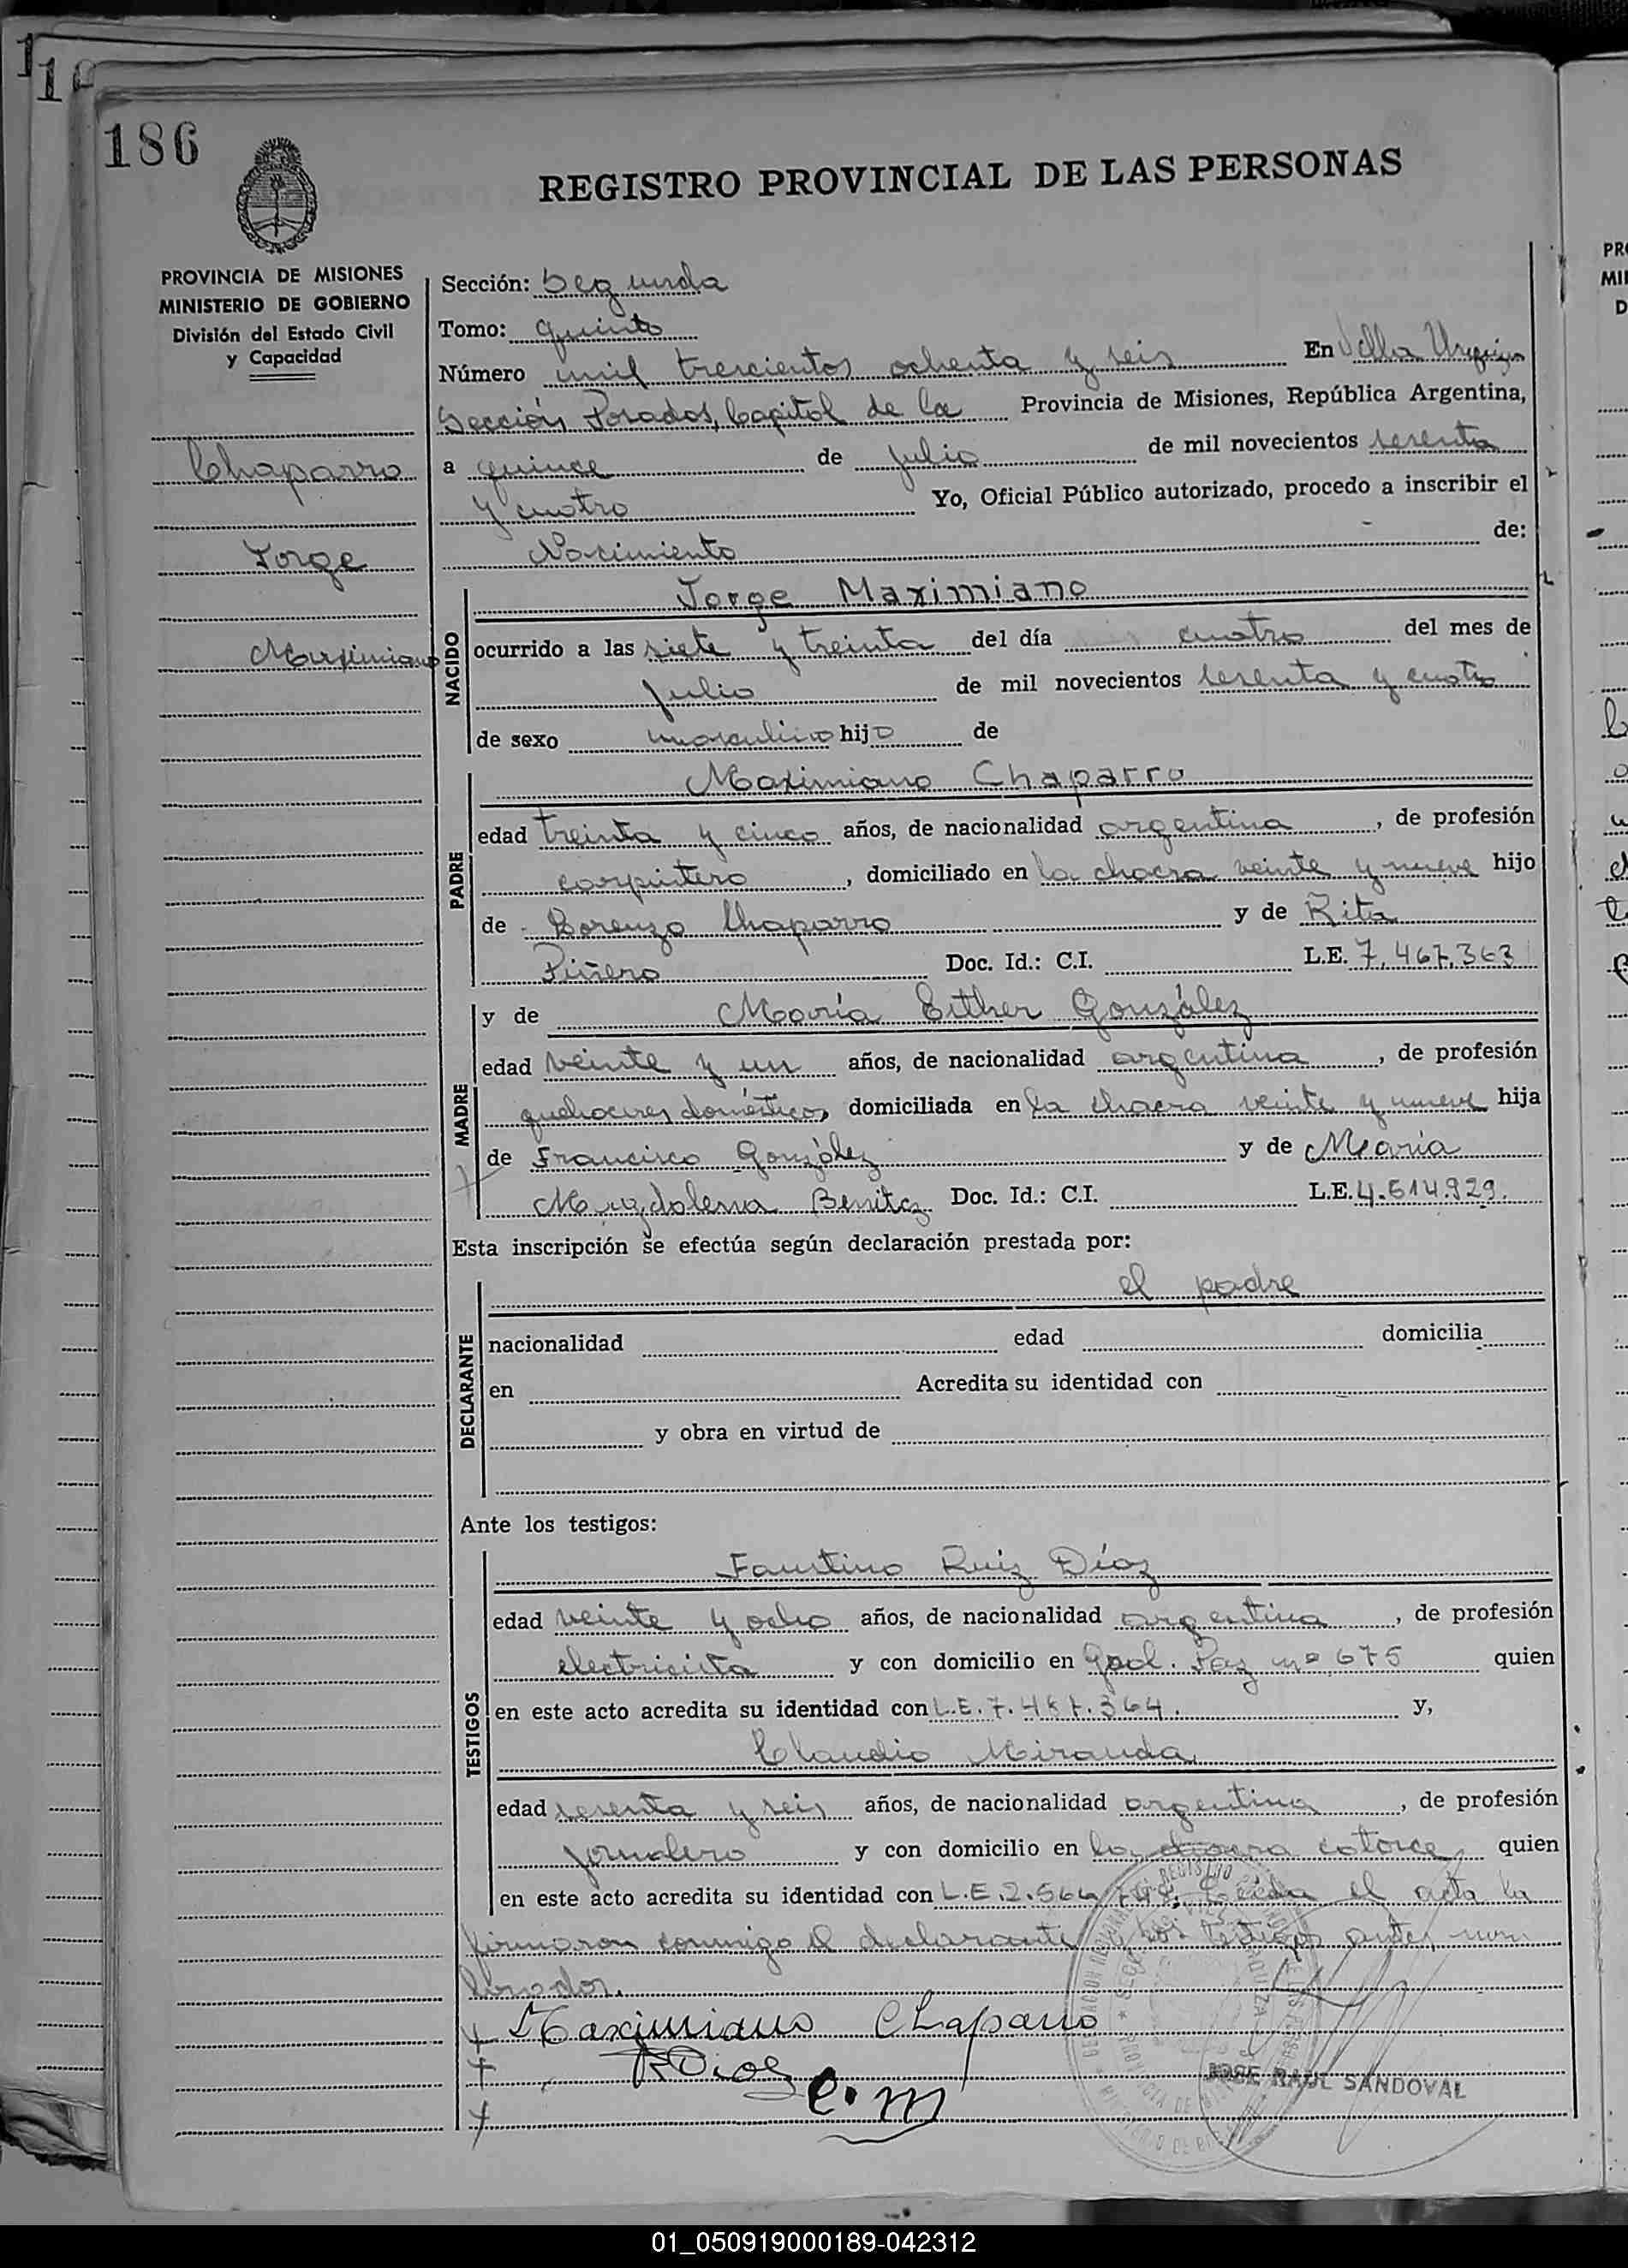 186
REGISTRO PROVINCIAL DE LAS PERSONAS
PROVINCIA DE MISIONES
MINISTERIO DE GOBIERNO
División del Estado Civil
y Capacidad
Chaparro
Jorge
Maximiano
Sección: Segunda
Tomo: quinto
Número mil trescientos ochenta y seis En Villa Urquiza
Sección Posadas, Capital de la Provincia de Misiones, República Argentina,
a quince de julio de mil novecientos sesenta
y cuatro Yo, Oficial Público autorizado, procedo a inscribir el
Nacimiento de:
NACIDO
Jorge Maximiano
ocurrido a las siete y treinta del día cuatro del mes de
julio de mil novecientos sesenta y cuatro
de sexo masculino hijo de
PADRE
Maximiano Chaparro
edad treinta y cinco años, de nacionalidad argentina, de profesión
carpintero, domiciliado en la chacra veinte y nueve hijo
de Lorenzo Chaparro y de Rita
Piñero Doc. Id.: C.I. L.E. 7.467.363
MADRE
y de María Esther González
edad veinte y un años, de nacionalidad argentina, de profesión
quehaceres domésticos domiciliada en la chacra veinte y nueve hija
de Francisco González y de María
Magdalena Benitez Doc. Id.: C.I. L.E. 4.614.929.
Esta inscripción se efectúa según declaración prestada por:
DECLARANTE
el padre
nacionalidad edad domicilia
en Acredita su identidad con
y obra en virtud de
Ante los testigos:
TESTIGOS
Faustino Ruiz Díaz
edad veinte y ocho años, de nacionalidad argentina, de profesión
electricista y con domicilio en Gral. Paz nº 675 quien
en este acto acredita su identidad con L.E. 7.487.364. y,
Claudio Miranda
edad sesenta y seis años, de nacionalidad argentina, de profesión
jornalero y con domicilio en la chacra catorce quien
en este acto acredita su identidad con L.E. 2.564 Leída el acta la
firmaron conmigo el declarante y los testigos antes nom
brados.
Maximiano Chaparro
RDiaz
C. M
JOSE RAUL SANDOVAL
01_050919000189-042312